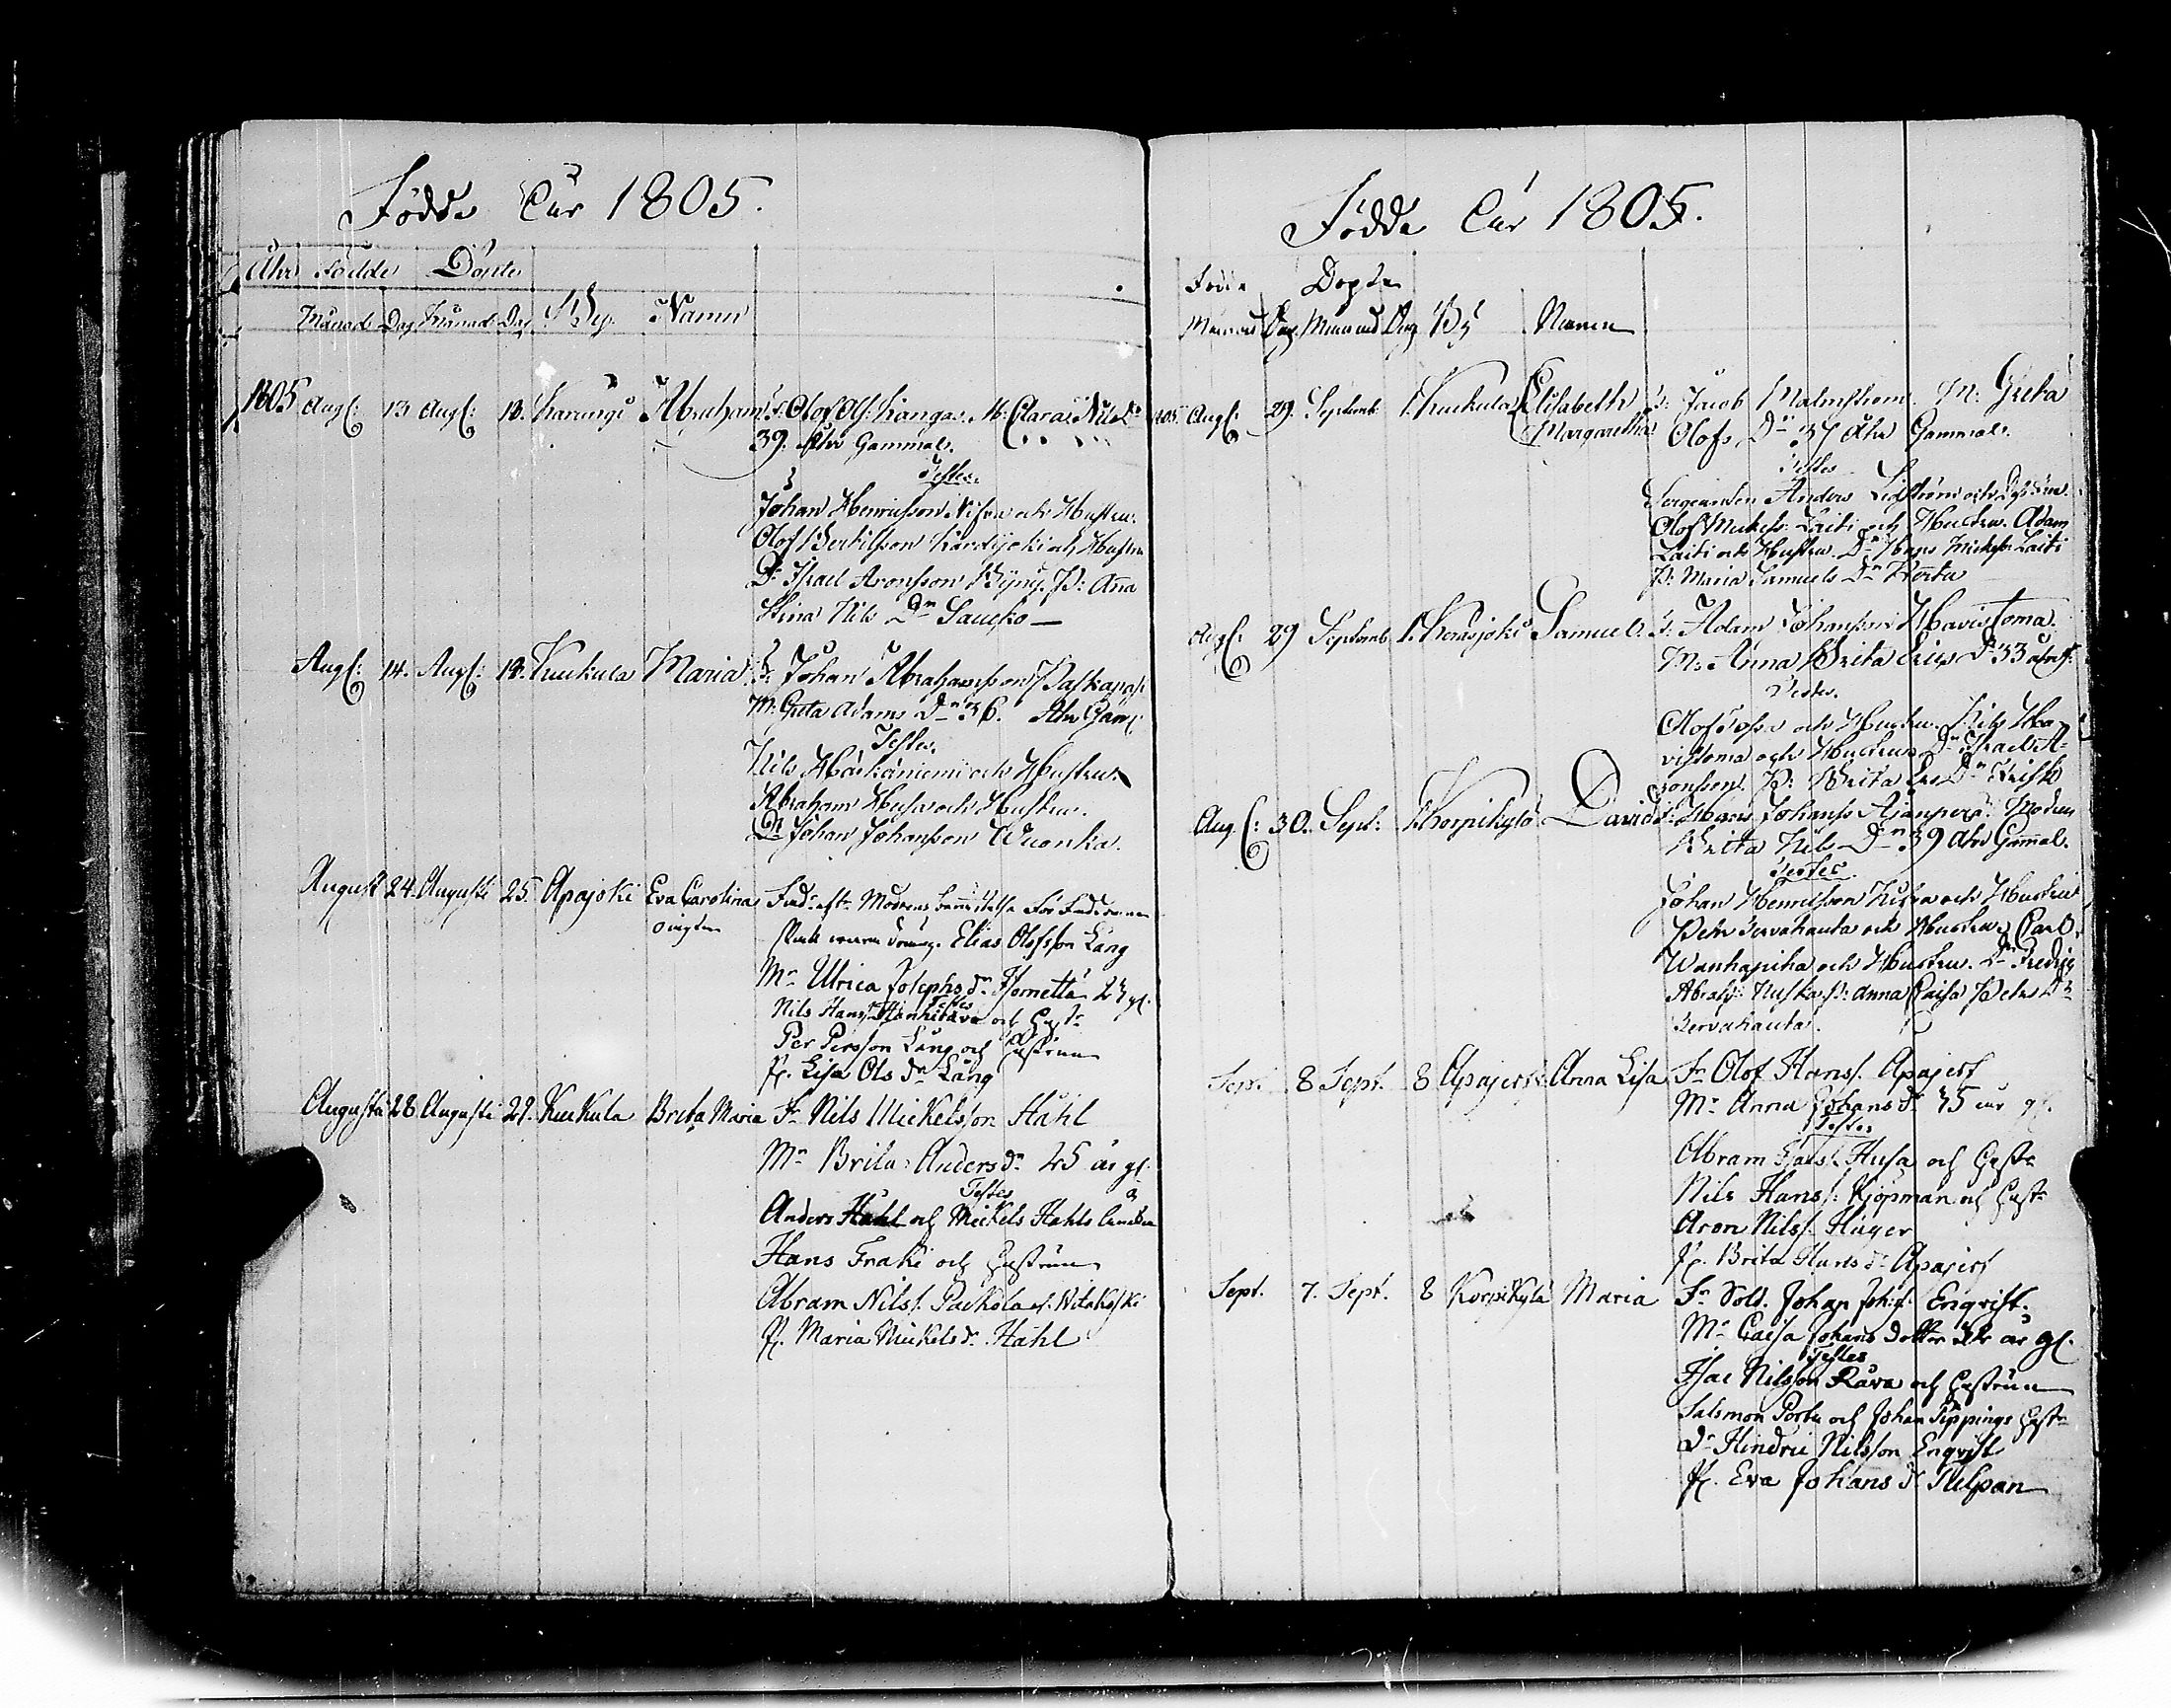 Födde Åur 1805.
Åhr Födde Döpte
Månad Dag Månad Dag By Namn
1805 Aug: 13 Aug: 18. Karungi Abraham F: Olof Ols: Kangas. M: Clara Nils Dr
39. Åhr Gammal.
Testes.
Johan Henricsson Nisva och Hustru.
Olof Bertilsson Kardijoki och Hustru
D: Israel Aronsson P: Ana
Stina Nils Dr Saucko
Aug: 14. Aug: 18. Kuckula Maria F: Johan Abrahamsson Paskapä:
M: Greta Adams Dr 36. Åhr Gam:
Testes.
Nils Häskäniemi och Hustru.
Abraham Husa och Hustru.
Dr Johan Johansson Wuonka.
August 24. Augusti 25. Apajoki Eva Carolina
oägten
Elias Olofsson Lång
Mr Ulrica Josephs dr Hornetta 27 gl.
Testes
Nils Hanss. och Hustr
Per Persson Lång och Hustrun
P. Lisa Ols dr Lång
Augusti 28 Augusti 29. Kuckula Brita Maria Fr Nils Mickelsson Hahl
Mr Brita Anders dr 25 år gl.
Testes
Anders Hahl och Mickels Hahls
Hans Fraki och Hustrun
Abram Nilss. Packola
P. Maria Mickels dr Hahl
Födde Åur 1805.
Födde Döpte
Månad Dag. Månad Dag By Namn
1805. Aug: 29. Septemb: 1. Kuckula Elisabeth F: Jacob Malmstrom. M: Greta
Margaretha Olofs Dr 37 Åhr Gammal.
Testes
Sergeanten Anders Lidström och
Olof Mickels: Laiti och Hustru. Adam
Laiti och Hustru. Dr Hans Mickelss: Laiti
P: Maria Samuels Dr Porta
Aug: 29 Septemb 1. Korsjoki Samuel F: Adam Johansson Havistoma.
M: Anna Brita Erics Dr 33 åhr
Testes.
Olof och Hustru. Nils Ha-
vistoma och Hustru Dr Israel A-
ronsson. P: Brita Ers Dr
Aug: 30. Sept: 1. Korpikylä David F: Hans Johanss Äjänperä. Modren
Brita Nils Dr 39 Åhr Gammal.
Testes
Johan Henricsson Nisva och Hustru
Petr Servakanta och Hustru. Carl
Wanhapiha och Hustru. Dr Fredric
Abrahs: P: Anna Caisa Petrs Dr
Servakanta.
Sept. 8 Sept. 8 Apajerf Anna Lisa Fr Olof Hanss. Apajerf
Mr Anna Johans dr 35 år gl.
Testes
Abram Husa och Hustr
Nils Hanss: Kjöpman och Hustr
Aron Nilss. Häger
P. Brita Hans dr Apajerf
Sept. 7. Sept. 8 Korpikylä Maria Fr Sold. Johan Joh:s: Enqvist.
Mr Caisa Johans dotter år gl.
Testes
Isac Nilsson Råva och Hustrun
Salomon Porta och Johan Tippings Hustr
Dr Hindric Nilsson Enqvist
P. Eva Johans dr Tulpan